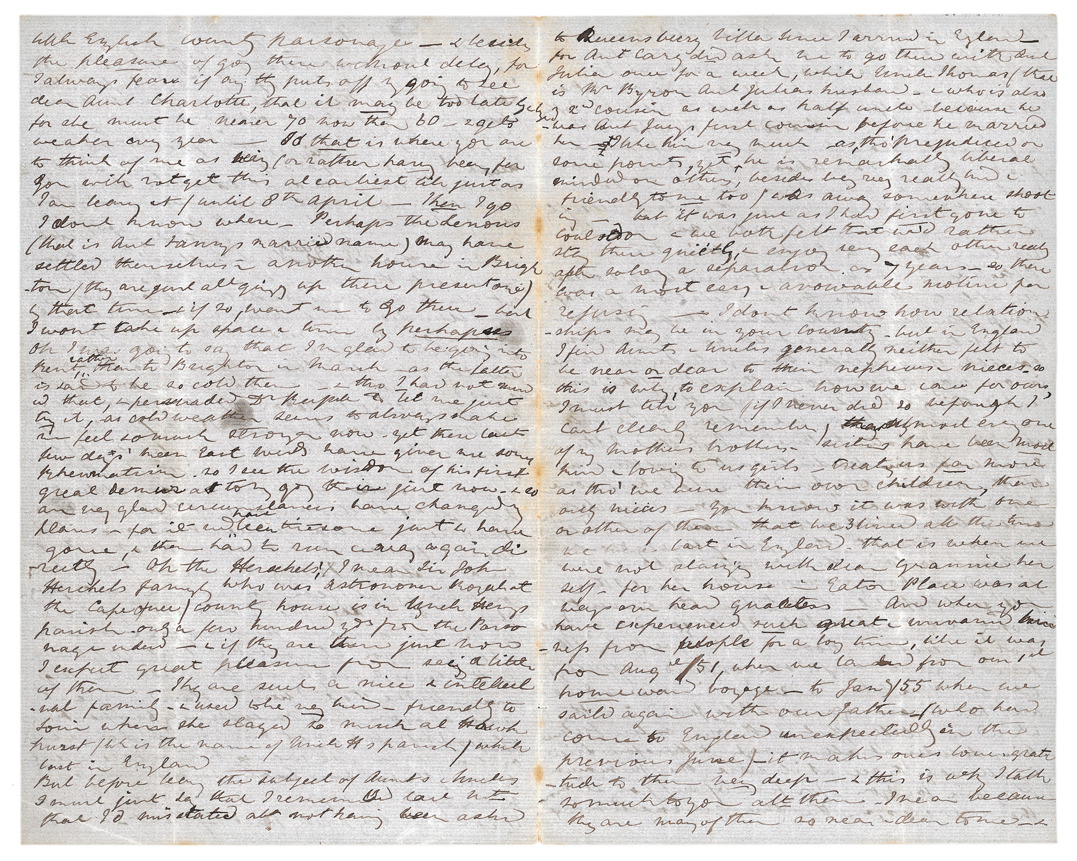 little English county parsonage — & besides
the pleasure of going there without delay, for
I always fear if any th puts off my going to see
dear Aunt Charlotte, that it may be too late
for she must be nearer 70 now than 60 — & gets
weaker every year — So that is where you are
to think of me as being (or rather having been, for
you will not get this at earliest till just as
I am leaving it / until 8th April — Then I go
I dont know where — Perhaps the
(that is Aunt Fannys married name) may have
settled themselves in another house in Brigh
-ton (they are just abt giving up their present one)
by that time — & if so, want me to go there — but
I wont take up space & time by perhapses
Oh I was going to say that I'm glad to be going into
Kent, rather than to Brighton in March as the latter
is said to be so cold then — & tho' I had not mind
-ed that, & persuaded Dr to let me just
try it, as cold weather seems to always make
me feel so much stronger now — yet these last
few days' mean East winds have given me some
Rheumatism — so I see the wisdom of his first
great demur as to my going there just now — & so
am very glad circumstances have changed my
plans — for it wd have been tiresome just to have
gone, & then had to run away again di
rectly — Oh the Herschels, I mean Sir John
Herschels family who was astronomer Royal at
the Cape (over) county house is in Uncle Henrys
parish only a few hundred yds from the Parso
nage – & if they are there just now
I expect great pleasure from seeing a little
of them — They are such a nice & intellect
-ual family — & used to be very kind — friendly to
Loui when she stayed so much at Hawk
hurst (wh is the name of Uncle Hs parish) while
last in England
But before leaving the subject of Aunts & Uncles
I must just say that I remembered last
that I'd misstated abt not having been asked
to Queensberry Villa since I arrived in England —
for Aunt Cary did ask me to go there with Aunt
Julia once for a week, while Uncle Thomas (that
is Mr Byron Aunt Julias husband — & who is also
my 2nd cousin as well as half uncle — because he
was Aunt Juys first cousin before he married
her — I like him very much — as tho' prejudiced on
some points, yet he is remarkably liberal
minded on others, besides being very really kind &
friendly to me too) was away somewhere shoot
ing — but it was just as I had first gone to
Coulsdon — & we both felt that we'd rather
stay there quietly, & enjoy seeing each other really
after so long a separation as 7 years — so there
was a most easy & avowable motive for
refusing — I dont know how relation
-ships may be in your country — but in England
I find Aunts & Uncles generally neither felt to
be near or dear to their nephews & nieces, so
this is why, to explain how we care for ours
I must tell you (if I never did so before, & I
cant clearly remember) that almost every one
of my mothers brothers — sisters have been most
kind & loving to us girls — treating us far more
as tho' we were their own children, than
only nieces — You know it was with one
or other of them that we 3 lived all the time
we were last in England — that is when we
were not staying with dear Grannie her
self — for her house in Eaton Place was al
ways our head quarters And when you
have experienced such great & unvaried kind
ness from people for a long time, like it was
from Augst /51, when we landed from our, 1st
homeward voyage — to Jany /55 when we
saild again with our father (who had
come to England unexpectedly in the
previous June) — it makes ones love & grati
tude to them very deep — & this is why I talk
so much to you abt them — I mean because
they are many of them so near & dear to me — &